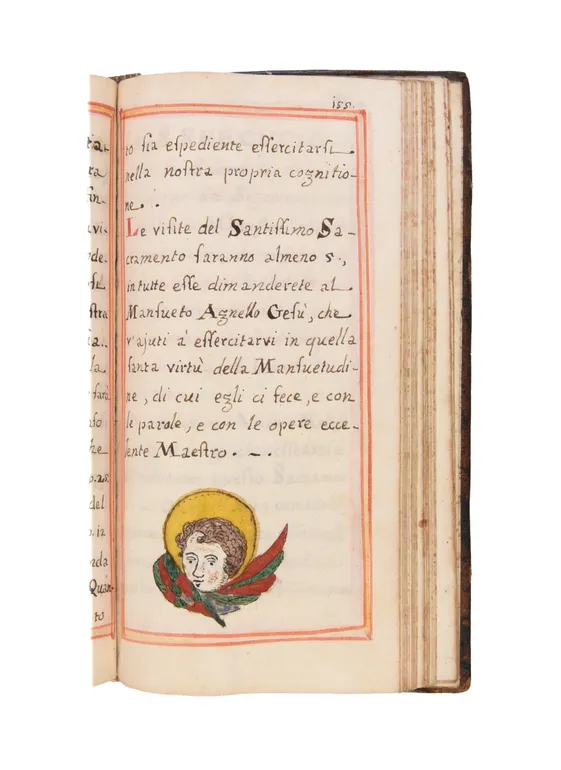 155.
to ſia eſpediente eſſercitarſi
nella noſtra propria cognitio-
ne.
Le viſite del Santiſſimo Sa-
cramento ſaranno almeno 5.,
in tutte eſſe dimanderete al
Manſueto Agnello Geſù, che
v'ajuti à eſſercitarvi in quella
ſanta virtù della Manſuetudi-
ne, di cui egli ci fece, e con
le parole, e con le opere ecce-
lente Maeſtro. -.